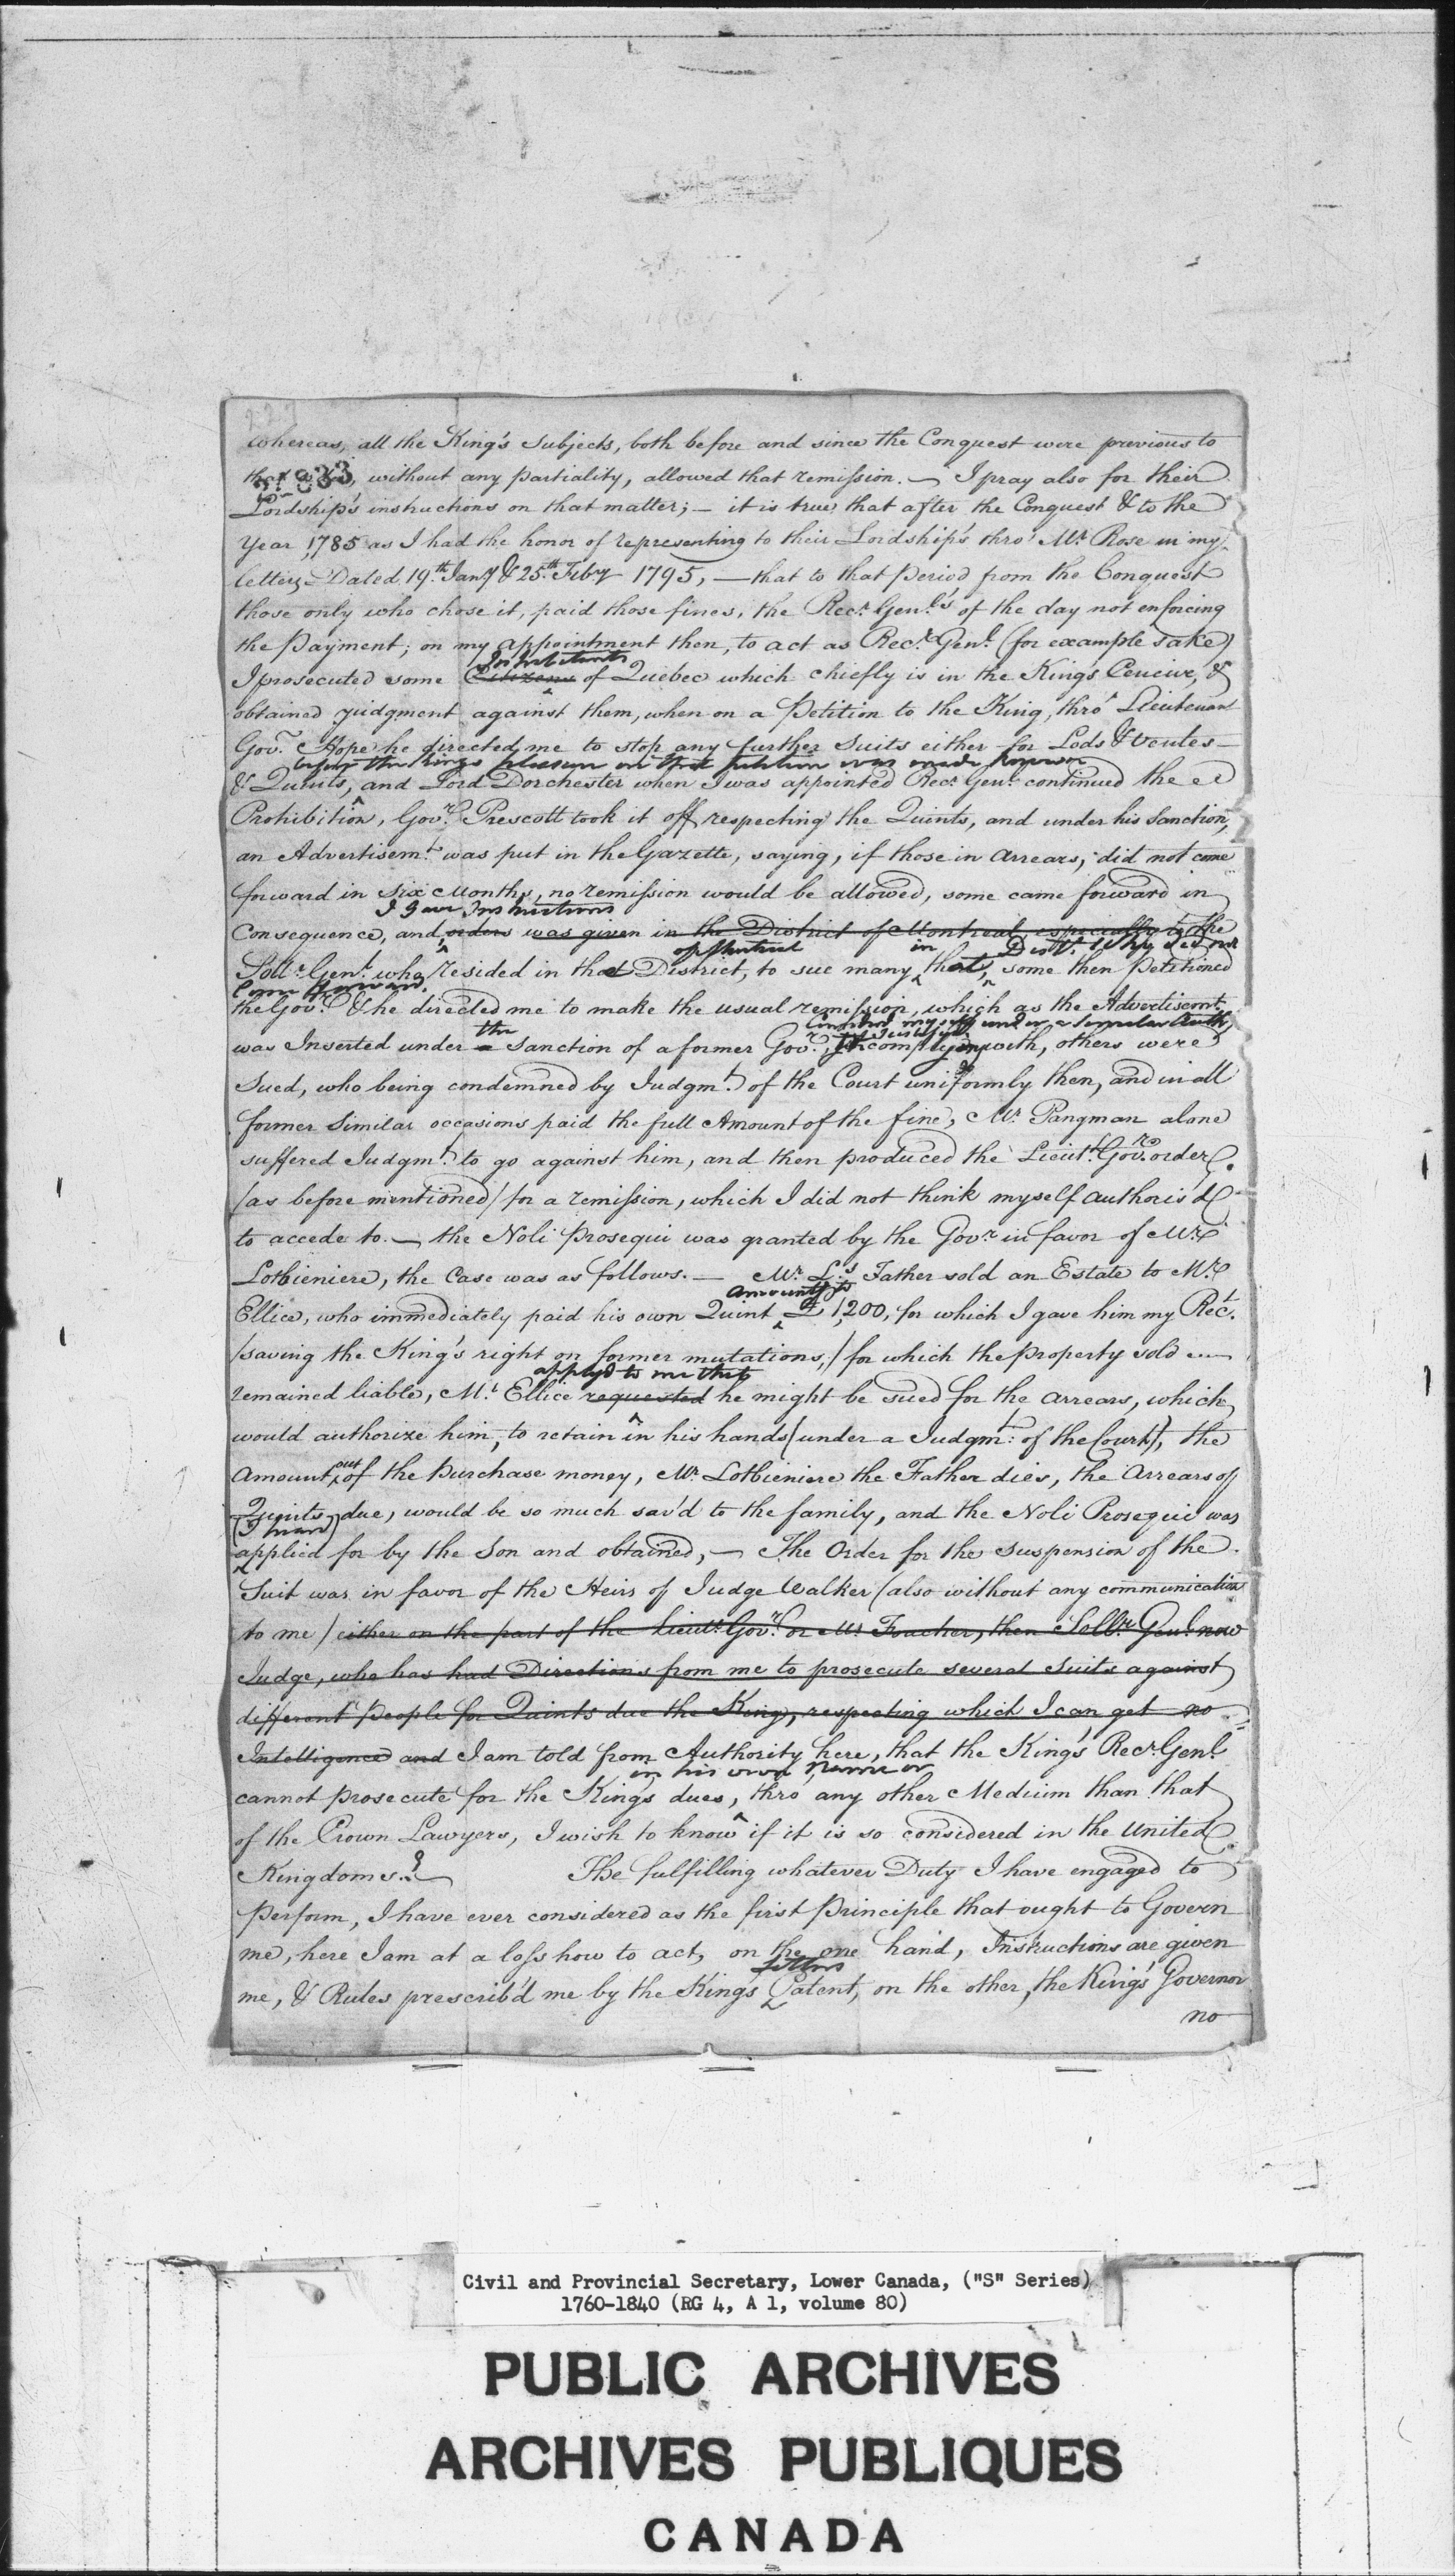 whereas, all the King's Subjects, both before and since the Conquest were previous to
833
that without any partiality, allowed that remission. — I pray also for their
Lordship's instructions on that matter; — it is true, that after the Conquest & to the
Year 1785 as I had the honor of representing to their Lordship's thro' Mr. Rose in my
letters Dated 19th Jany & 25th Feby 1795, — that to that period from the Conquest
those only who chose it, paid those fines, the Recr. Genl's of the day not enforcing
the Payment; on my appointment then, to act as Recr. Genl. (for example sake)
Inhabitants
I prosecuted some Citizens of Quebec which chiefly is in the King's Cencive, &
obtained judgment against them, when on a Petition to the King, thro' Lieutenant
Govr. Hope he directed me to stop any further Suits either for Lods & Ventes —
before the Kings pleasure on that petition was made known
& Quints, and Lord Dorchester when I was appointed Recr. Genl. continued the
Prohibition, Govr. Prescott took it off respecting the Quints, and under his Sanction,
an Advertisemt. was put in the Gazette, saying, if those in Arrears, did not come
forward in six Months, no remission would be allowed, some came forward in
I gave Instructions
Consequence, and orders was given in the District of Montreal especially to the
of Montreal in Distt. Why did not
Sollr. Genl. who resided in that District, to sue many that, some then Petitioned
come forward.
the Govr. & he directed me to make the usual remission, which as the Advertisemt.
the
was Inserted under a Sanction of a former Govr., with, others were
Sued, who being condemned by Judgmt. of the Court uniformly then, and in all
former Similar occasions paid the full Amount of the fine, Mr. Pangman alone
suffered Judgmt. to go against him, and then produced the Lieut. Govr. order
/as before mentioned/ for a remission, which I did not think myself authoris'd
to accede to. — the Noli Prosequi was granted by the Govr. in favor of Mr.
Lotbieniere, the Case was as follows. — Mr. L's Father sold an Estate to Mr.
amountg to
Ellice, who immediately paid his own Quint £1,200, for which I gave him my Rect.
/saving the King's right on former mutations,/ for which the property sold
applyd to me that
remained liable, Mr. Ellice requested he might be sued for the arrears, which
would authorize him, to retain in his hands (under a Judgmt. of the Court), the
Amount, out of the Purchase money, Mr. Lotbieniere the Father dies, the Arrears of
Quints due, would be so much sav'd to the family, and the Noli Prosequi was
applied for by the Son and obtained, — The Order for the suspension of the
Suit was in favor of the Heirs of Judge Walker (also without any communication
to me) either on the part of the Lieut. Govr. or Mr. Foucher, then Sollr. Genl. now
Judge, who has had Directions from me to prosecute several Suits against
different People for Quints due the King, respecting which I can get no
Intelligence and I am told from Authority here, that the King's Recr. Genl.
in his own name or
cannot prosecute for the King's dues, thro' any other Medium than that
of the Crown Lawyers, I wish to know if it is so considered in the United
Kingdoms? — The fulfilling whatever Duty I have engaged to
Perform, I have ever considered as the first Principle that ought to Govern
me, here I am at a loss how to act, on the one hand, Instructions are given
letters
me, & Rules prescrib'd me by the King's Patent, on the other, the King's Governor
no
Civil and Provincial Secretary, Lower Canada, ("S" Series)
1760-1840 (RG 4, A 1, volume 80)
PUBLIC ARCHIVES
ARCHIVES PUBLIQUES
CANADA